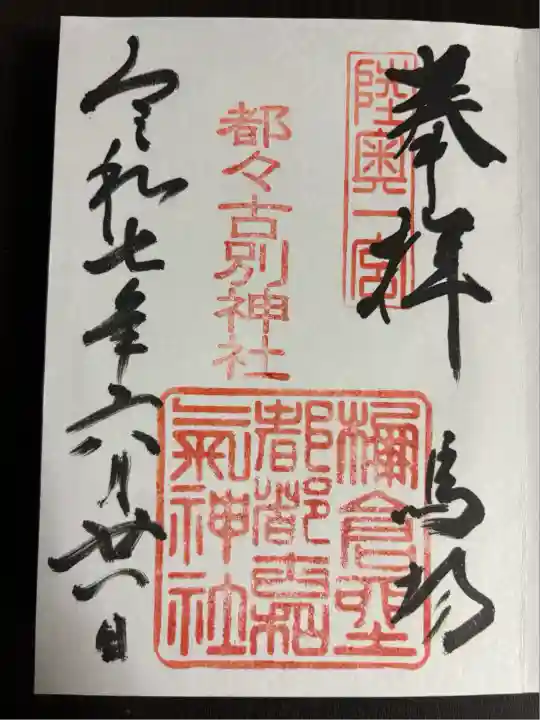 奉拝 馬場
陸奥一宮
都々古別神社
棚倉
都都古和
氣神社
令和七年六月廿日